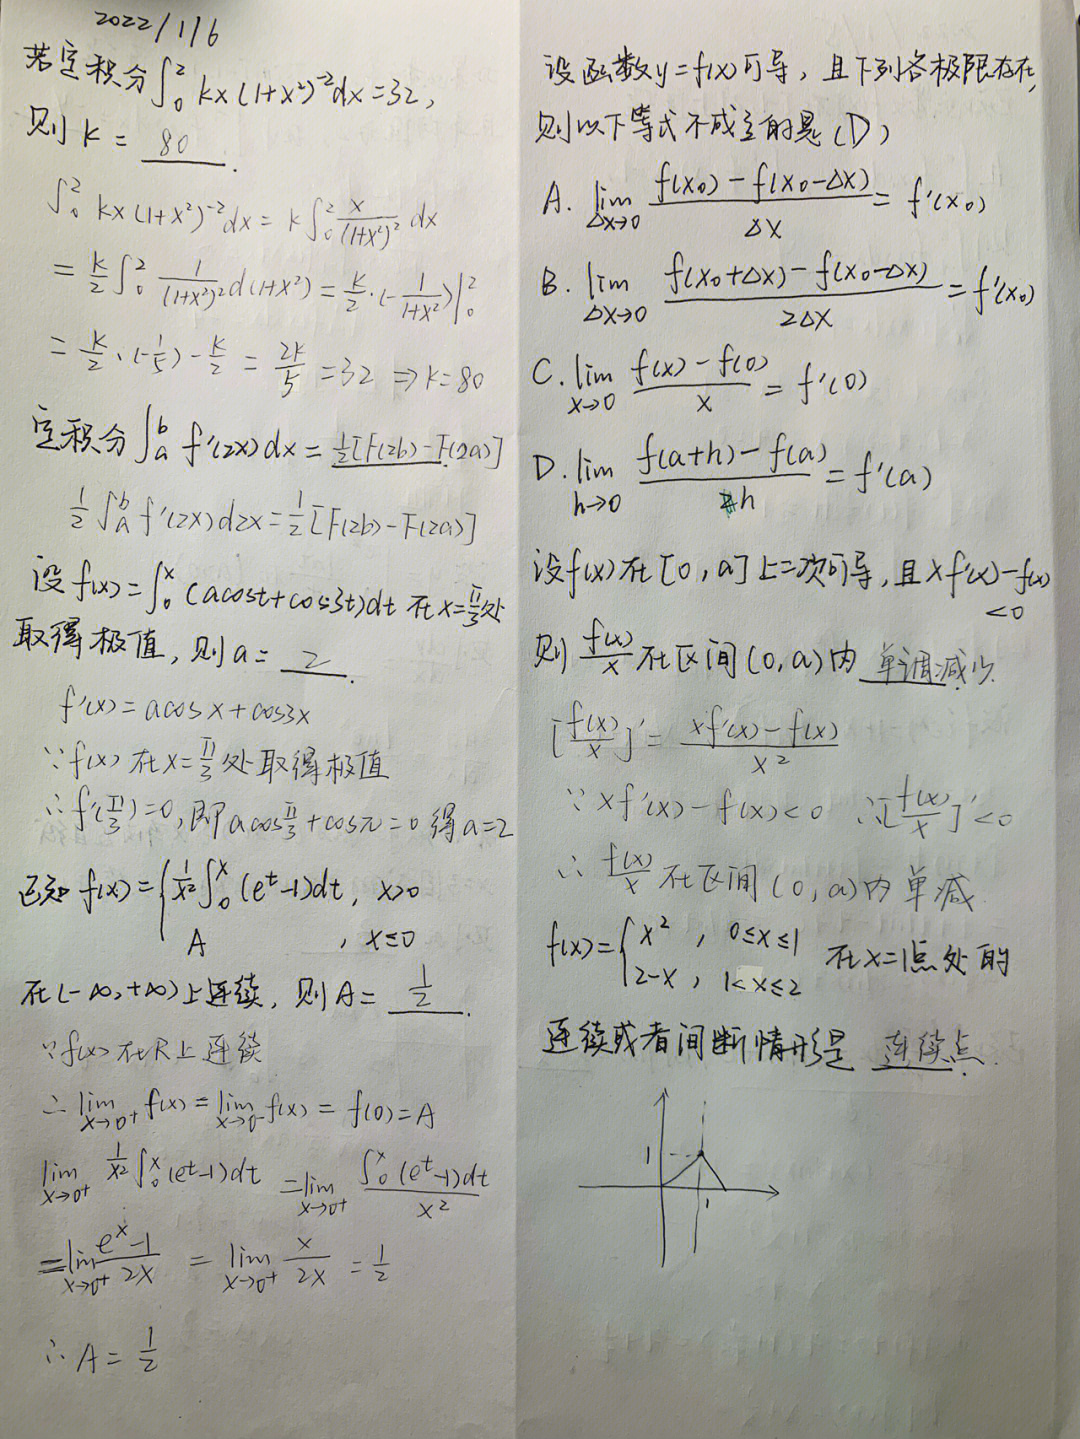 2022/1/6
若定积分∫₀² kx(1+x²)⁻²dx=32,
则 k = 80 .
∫₀² kx(1+x²)⁻²dx = k∫₀² x/(1+x²)² dx
= k/2 ∫₀² 1/(1+x²)² d(1+x²) = k/2 · (-1/(1+x²))|₀²
= k/2 · (-1/5) - k/2 = 2k/5 = 32 ⇒ k=80
定积分∫ₐᵇ f'(2x)dx = 1/2[F(2b)-F(2a)]
1/2 ∫ₐᵇ f'(2x)d2x = 1/2[F(2b)-F(2a)]
设 f(x)=∫₀ˣ (acost+cos3t)dt 在x=π/3处
取得极值, 则 a= 2 .
f'(x)=acosx+cos3x
∵f(x)在x=π/3处取得极值
∴f'(π/3)=0, 即acosπ/3+cosπ=0 得a=2
已知 f(x)={ 1/x² ∫₀ˣ (eᵗ-1)dt, x>0
A , x≤0
在(-∞,+∞)上连续, 则A= 1/2 .
∵f(x)在R上连续
∴ lim x→0⁺ f(x) = lim x→0⁻ f(x) = f(0)=A
lim x→0⁺ 1/x² ∫₀ˣ (eᵗ-1)dt = lim x→0⁺ ∫₀ˣ (eᵗ-1)dt / x²
= lim x→0⁺ (eˣ-1)/2x = lim x→0⁺ x/2x = 1/2
∴ A = 1/2
设函数y=f(x)可导, 且下列各极限存在,
则以下等式不成立的是(D)
A. lim Δx→0 (f(x₀)-f(x₀-Δx))/Δx = f'(x₀)
B. lim Δx→0 (f(x₀+Δx)-f(x₀-Δx))/2Δx = f'(x₀)
C. lim x→0 (f(x)-f(0))/x = f'(0)
D. lim h→0 (f(a+h)-f(a))/h = f'(a)
设f(x)在[0,a]上二次可导, 且xf'(x)-f(x)
<0
则 f(x)/x 在区间(0,a)内 单调减少.
[f(x)/x]' = (xf'(x)-f(x))/x²
∵ xf'(x)-f(x)<0 ∴[f(x)/x]'<0
∴ f(x)/x 在区间(0,a)内单减
f(x)={ x² , 0≤x≤1 在x=1点处的
2-x , 1<x≤2
连续或者间断情形是 连续点.
1
1